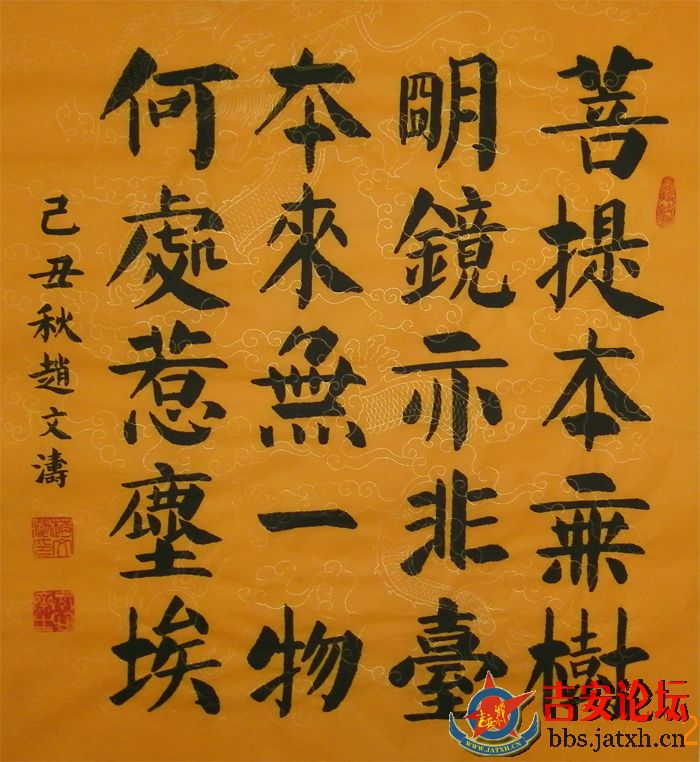 菩提本無樹
明鏡亦非臺
本來無一物
何處惹塵埃
己丑秋趙文濤
吉安论坛
bbs.jatxh.cn
WWW.JATXH.CN
2